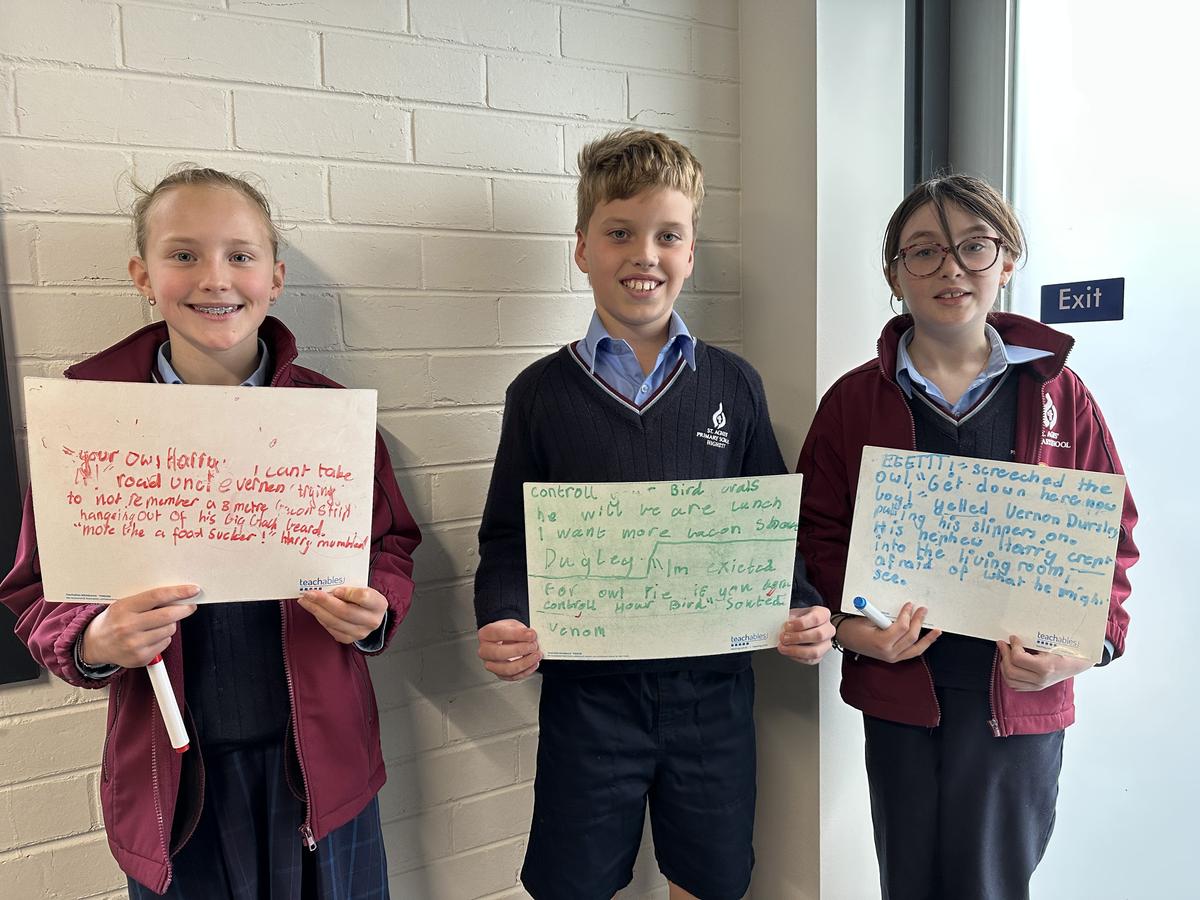 your owl Harry. I cant take
road uncle vernen trying
to not remember a 3 metre bacon still
hangeing out of his big black beard.
"more like a food sucker!" Harry mumbled
teachables
controll Bird urals
he will be are lunch
I want more bacon
Dudley. I'm exicted
For owl Pie is you
controll your Bird" Souted
venom
teachables
ST. AGNES'
PRIMARY SCHOOL
HIGHETT
EEETTT!" screeched the
owl, "Get down here now
boy!" yelled Vernon Dursley
pulling his slippers on.
His nephew Harry crept
into the living room,
afraid of what he might
see.
teachables
ST. AGNES'
PRIMARY SCHOOL
Exit